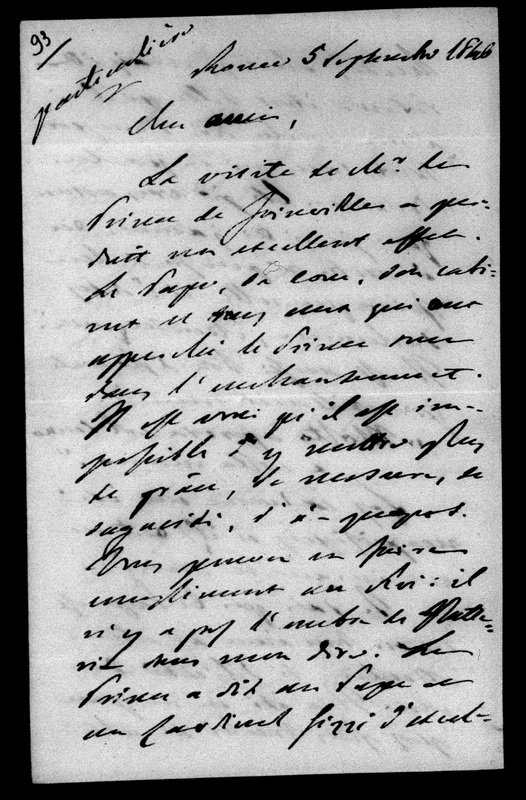 93
particulière
Rome 5 Septembre 1846
Cher ami,
La visite de Mr. le
Prince de Joinville a pro-
duit un excellent effet.
Le Pape, sa cour, son cabi-
net et tous ceux qui ont
approché le Prince sont
dans l'enchantement.
Il est vrai qu'il est im-
possible d'y mettre plus
de grâce, de mesure, de
sagacité, d'à-propos.
Vous pouvez en faire
compliment au Roi: il
n'y a pas l'ombre de flatte-
rie dans mon dire. Le
Prince a dit au Pape et
au Cardinal Gizzi d'excel-